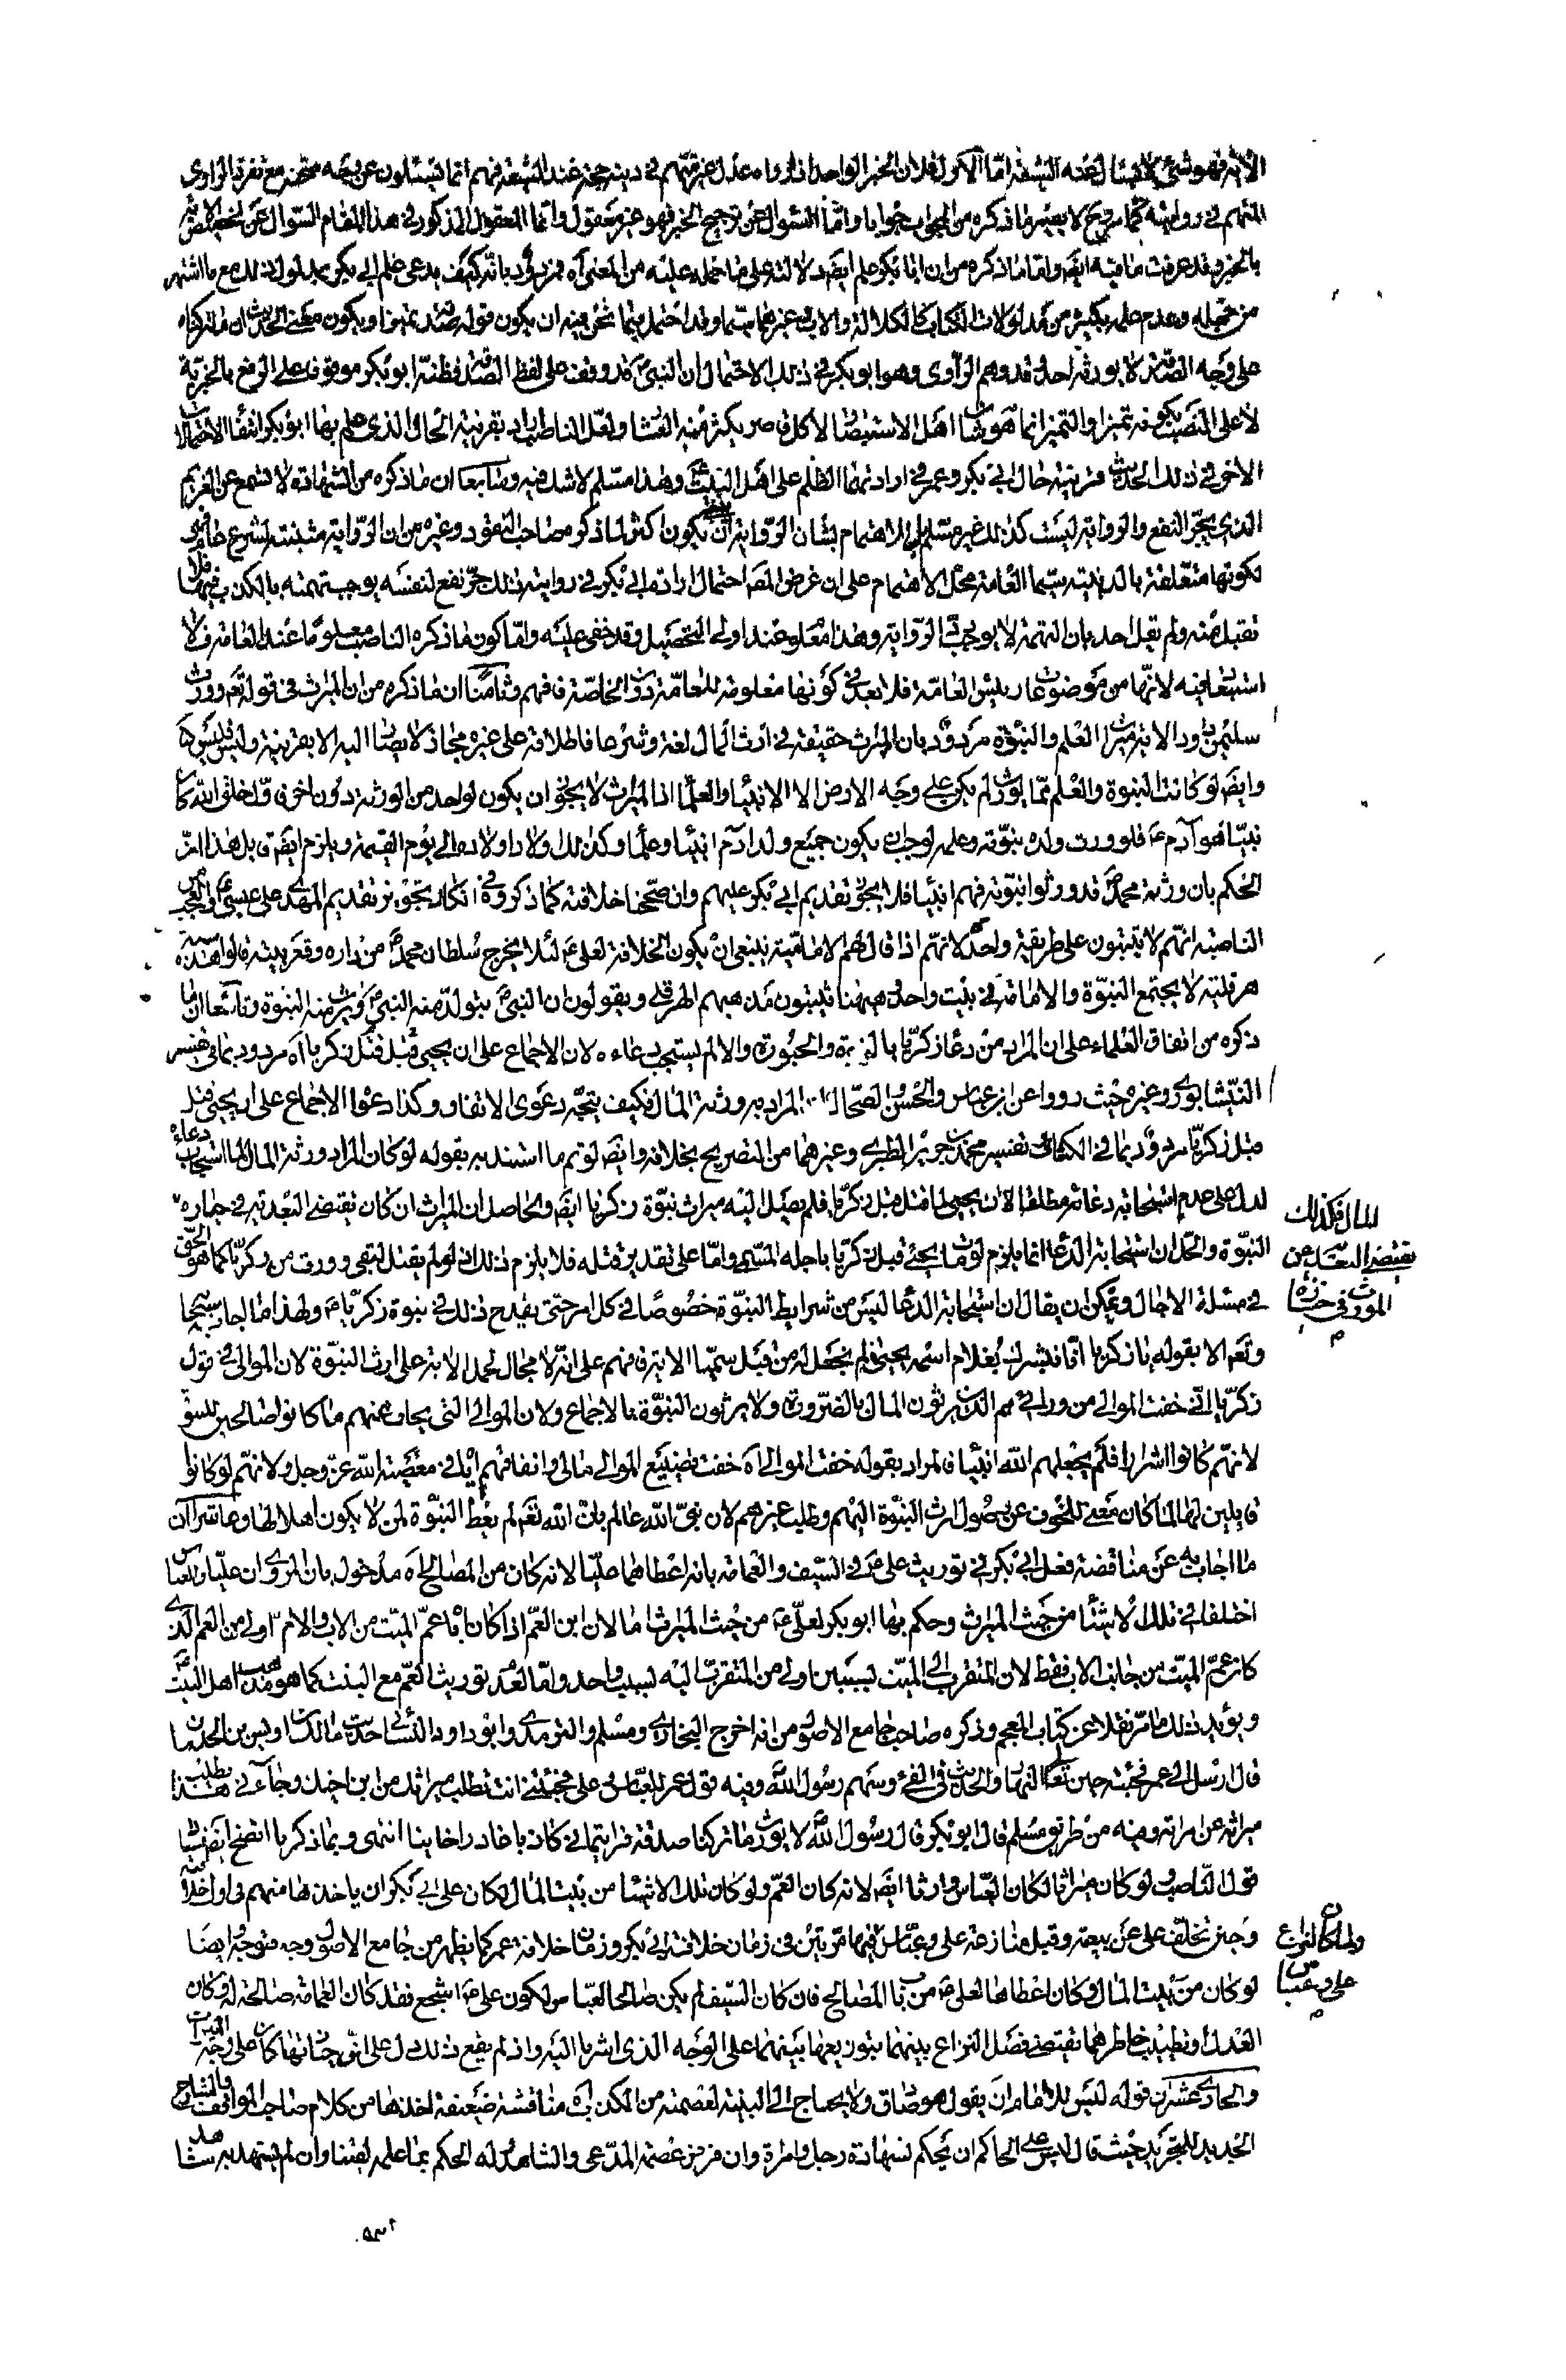 الآية فهو شئ لا يسئل عنه الشيعة امّا الأول فلان الخبر الواحد اذا رواه عدل غير متهم في دينه حجة عند الشيعة فهم انما يسئلون عن حجية مع تفرد الراوي
المتهم في روايته كما مر لا يصير ما ذكره من الجواب جوابا وانما السؤال عن ترجيح الخبر فهو غير معقول وانما المعقول المذكور في هذا المقام السؤال عن تخصيص الآية
بالخبر وقد عرفت ما فيه ايضا واما ما ذكره من ان ابا بكر علم ايضا دلالته على ما حمله عليه من المعنى آه فمردود بانه كيف يدعى علم ابي بكر بمدلول ذلك مع ما اشتهر
من جهله وعدم علمه بكثير من مدلولات الكتاب كالكلالة والاب وغيرهما سيما وقد احتمل فيما نحن فيه ان يكون قوله صدقة تميزا ويكون معنى الحديث ان ما تركناه
على وجه الصدقة لا يورثه احد وقد وهم الراوى وهو ابو بكر في ذلك الاحتمال ان النبي ص قد وقف على لفظ الصدقة فظنه ابو بكر موقوفا على الرفع بالخبرية
لا على النصب بكونه تميزا والتميز انما هو شان اهل الاستبصار لا كل قاصر يكثر منه العثار ولعل الناصب اراد بقرينة الحال الذي علم بها ابو بكر انتفاء الاحتمالات
الاخر في ذلك الحديث قرينة حال ابي بكر وعمر في ارادتهما الظلم على اهل البيت ع وهذا مسلم لا شك فيه وسابعا ان ما ذكره من الشهادة لا تسمع عن الغريم
الذي يجر النفع والرواية ليست كذلك غير مسلم بل الاهتمام بشان الرواية يكون اكثر لما ذكر صاحب العقود وغيره من ان الرواية مثبتة لشرع عام
لكونها متعلقة بالدين سيما العامة محل الاهتمام على ان غرض المص احتمال ارادة ابي بكر في روايته ذلك جر نفع لنفسه يوجب تهمته بالكذب فيها فلا
تقبل منه ولم يقل احد بان التهمة لا يوجب رد الرواية وهذا معلوم عند اولى التحصيل وقد خفى عليه واما كون ما ذكره الناصب معلوما عند العامة فلا
استبعاد فيه لانها من موضوعات رئيس العامة فلا بعد في كونها معلومة للعامة دون الخاصة فافهم وثامنا ان ما ذكره من ان الميراث في قوله تعم وورث
سليمن داود الآية ميراث العلم والنبوة مردود بان الميراث حقيقة في ارث المال لغة وشرعا فاطلاقه على غيره مجاز لا يصار اليه الا بقرينة وليس فليس
وايضا لو كانت النبوة والعلم مما يورث لم يكن على وجه الارض الا الانبياء والعلماء اذ الميراث لا يجوز ان يكون لواحد من الورثة دون اخر واول خلق الله كان
نبيا هو آدم ع فلو ورث ولده نبوته وعلمه لوجب ان يكون جميع ولد آدم انبياء وعلماء وكذلك اولاد اولاده الى يوم القيمة ويلزم ايضا من قبل هذا
الحكم بان ورثة محمد ص قد ورثوا نبوته فهم انبياء فلا يجوز تقديم ابي بكر عليهم وان صححنا خلافته كما ذكروه في انكار تجويز تقديم المهدي على عيسى ع والعجب من
الناصبة انهم لا يثبتون على طريقة واحدة لانهم اذا قال لهم الامامية ينبغي ان يكون الخلافة لعلي ع لئلا يخرج سلطان محمد ص من داره وقعر بيته قالوا هذه سنة
هرقلية لا يجتمع النبوة والامامة في بيت واحد وههنا يثبتون مذهبهم الهرقلي ويقولون ان النبي ص يتولد منه النبي ص ويرث منه النبوة وتاسعا ان ما
ذكره من اتفاق العلماء على ان المراد من دعاء زكريا بالنبوة والحبورة والا لم يستجب دعاءه لان الاجماع على ان يحيى قبل قتل زكريا آه مردود بما في تفسير
النيشابوري وغيره حيث رووا عن ابن عباس والحسن والضحاك ان المراد به ورثة المال فكيف يتجه دعوى الاتفاق وكذا دعوا الاجماع على ان يحيى قتل
قبل زكريا مردود بما في الكشاف تفسير محمد بن جرير الطبري وغيرهما من التصريح بخلافه وايضا لو تم ما استند به بقوله لو كان المراد ورثة المال لما استجاب دعاءه
لدل على عدم استجابة دعائه مطلقا لان يحيى لما قتل قبل زكريا فلم يصل اليه ميراث نبوة زكريا ايضا والحاصل ان الميراث ان كان يقتضي البعدية في حياره
المال فكذلك
يقتضي البعد عن
الموروث في حيازة
النبوة والحل ان استجابة الدعاء انما يلزم لو مات يحيى قبل زكريا باجله المسمى واما على تقدير قتله فلا يلزم ذلك اذ لو لم يقتل لبقى وورث من زكريا كما هو الحق
في مسئلة الآجال ويمكن ان يقال ان استجابة الدعاء ليس من شرايط النبوة خصوصا في كل امر حتى يقدح ذلك في نبوة زكريا ع ولهذا ما اجاب سبحانه
وتعم الا بقوله يا زكريا انا نبشرك بغلام اسمه يحيى لم نجعل له من قبل سميا الآية فافهم على انه لا مجال لحمل الآية على ارث النبوة لان الموالى في قول
زكريا اني خفت الموالي من ورائي هم الذين يرثون المال بالضرورة ولا يرثون النبوة بالاجماع ولان الموالي التي يخاف عنهم ما كانوا صالحين للنبوة
لانهم كانوا اشرارا فلم يجعلهم الله انبياء فالمراد بقوله خفت الموالي آه خفت تضييع الموالي مالي وانفاقهم اياه في معصية الله عز وجل ولانهم لو كانوا
قابلين لها لما كان معنى للخوف عن وصول ارث النبوة اليهم وطلب غيرهم لان نبي الله عالم بان الله تعم لم يعط النبوة لمن لا يكون اهلا لها وعاشرا ان
ما اجاب به عن مناقضة فعل ابي بكر في توريث علي ع في السيف والعمامة بانه اعطاهما عليا لانه كان من المصالح آه مدخول بان المروي ان عليا والعباس
اختلفا في تلك الاشياء من حيث الميراث وحكم بها ابو بكر لعلي ع من حيث الميراث اما لان ابن العم اذا كان ابا عم الميت من الاب والام اولى من العم الذي
كان عم الميت من جانب الاب فقط لان المتقرب الى الميت لسببين اولى من المتقرب اليه لسبب واحد واما لعدم توريث العم مع البنت كما هو مذهب اهل البيت ع
ويؤيد ذلك ما مر نقلا عن كتاب المعجم وذكره صاحب جامع الاصول من انه اخرج البخاري ومسلم والترمذي وابو داود النسائي حديث مالك اوس بن الحدثان
قال ارسل الي عمر فجئته حين تعالى النهار والحديث في الفئ وسهم رسول الله وفيه قول عمر للعباس وعلي فجئتني انت تطلب ميراثك من ابن اخيك وجاءني هذا يطلب
ميراثه عن امراته وفيه من طريق مسلم قال ابو بكر قال رسول الله لا يورث ما تركنا صدقة فرايتماني كاذبا غادرا خاينا انتهى وبما ذكرنا اتضح ايضا
قول الناصب ولو كان ميراثا لكان العباس وارثا ايضا لانه كان العم ولو كان تلك الاشياء من بيت المال لكان على ابي بكر ان ياخذها منهم في اول
وحين تخلف علي عن بيعته وقبل منازعة علي وعباس فيهما مرتين في زمان خلافة ابي بكر وزمان خلافة عمر كما يظهر من جامع الاصول وجه متوجه وايضا
ولما كان النزاع
علي وعباس
لو كان من بيت المال وكان اعطاها لعلي ع من باب المصالح فان كان السيف لم يكن صالحا لعباس لكون علي ع اشجع فقد كان العمامة صالحة له وكان
العدل وتطييب خاطرهما يقتضي فصل النزاع بينهما بتوزيعها بينهما على الوجه الذي اشرنا اليه واذ لم يقع ذلك دل على ان حيازتها كان على وجه الميراث
والحادي عشر ان قوله ليس للامام ان يقول هو صادق ولا يحتاج الى البينة لعصمته من الكذب آه مناقشة ضعيفة اخذها من كلام صاحب المواقف والشارح
الجديد للتجريد حيث قال ليس على الحاكم ان يحكم بشهادة رجل وامراة وان فرض عصمة المدعى والشاهد له الحكم بما علمه يقينا وان لم يشهد به شاهد